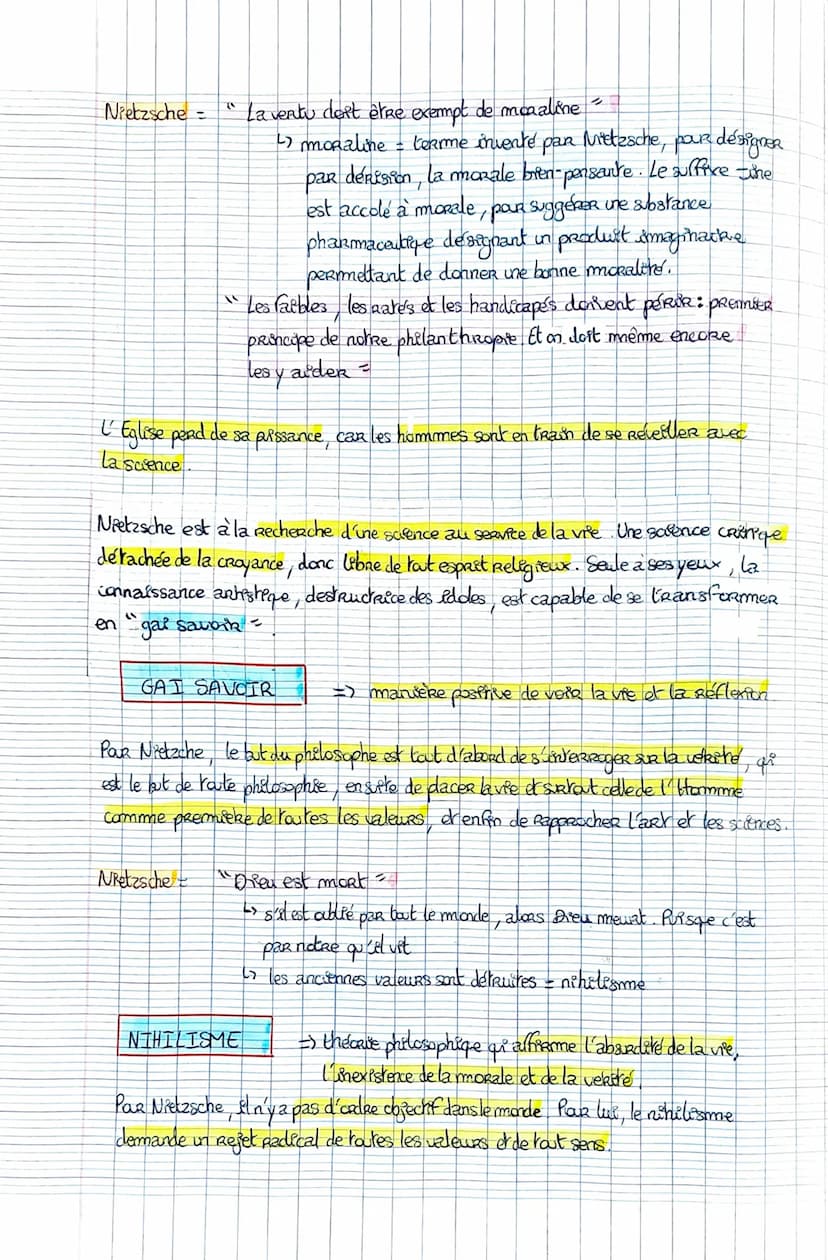 Nietzsche = " La vertu doit être exempt de moraline "
↳ moraline = terme inventé par Nietzsche, pour désigner
par dérision, la morale bien-pensante. Le suffixe -ine
est accolé à morale, pour suggérer une substance
pharmaceutique désignant un produit imaginaire
permettant de donner une bonne moralité.
" Les faibles, les ratés et les handicapés doivent périr : premier
principe de notre philanthropie. Et on doit même encore
les y aider "
L'Eglise perd de sa puissance, car les hommes sont en train de se réveiller avec
la science.
Nietzsche est à la recherche d'une science au service de la vie. Une science critique
détachée de la croyance, donc libre de tout esprit religieux. Seule à ses yeux, la
connaissance artistique, destructrice des idoles, est capable de se transformer
en " gai savoir ".
GAI SAVOIR => manière positive de voir la vie et la réflexion
Pour Nietzche, le but du philosophe est tout d'abord de s'interroger sur la vérité, qui
est le but de toute philosophie, ensuite de placer la vie et surtout celle de l'Homme
comme première de toutes les valeurs, et enfin de rapprocher l'art et les sciences.
Nietzsche = " Dieu est mort "
↳ s'il est oublié par tout le monde, alors Dieu meurt. Puisque c'est
par notre qu'il vit
↳ les anciennes valeurs sont détruites = nihilisme
NIHILISME => théorie philosophique qui affirme l'absurdité de la vie,
l'inexistence de la morale et de la vérité.
Pour Nietzsche, il n'y a pas d'ordre objectif dans le monde. Pour lui, le nihilisme
demande un rejet radical de toutes les valeurs et de tout sens.